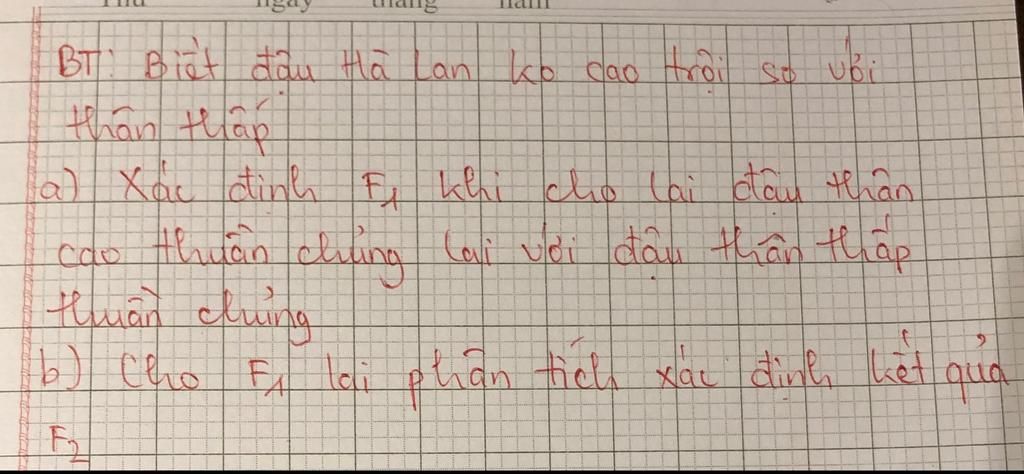 Thứ ngày tháng năm
BT: Biết đậu Hà Lan ko cao trội so với
thân thấp
a) Xác định F1 khi cho lai đậu thân
cao thuần chủng lai với đậu thân thấp
thuần chủng
b) Cho F1 lai phân tích xác định kết quả
F2